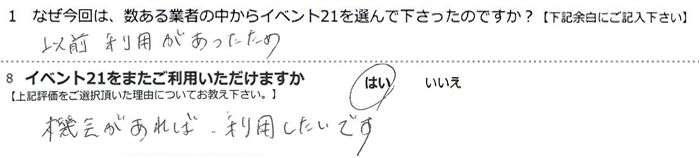 1 なぜ今回は、数ある業者の中からイベント21を選んで下さったのですか?【下記余白にご記入下さい】
以前 利用があったため
8 イベント21をまたご利用いただけますか はい いいえ
【上記評価をご選択頂いた理由についてお教え下さい。】
機会があれば、利用したいです